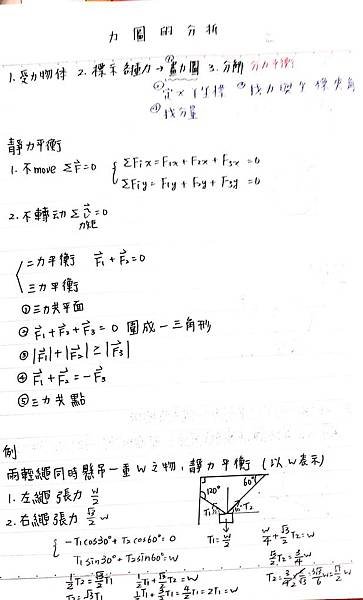 力圖的分析
1. 受力物体 2. 標示各種力→①畫力圖 3. 分解 合力平衡
②定 x Y 坐標 ③找力與 x 標夾角
④找分量
靜力平衡
1. 不move ΣF⃗=0 { ΣFix=F1x+F2x+F3x=0
ΣFiy=F1y+F2y+F3y=0
2. 不轉動 Στ⃗=0
力矩
二力平衡 F⃗1+F⃗2=0
三力平衡
①三力共平面
②F⃗1+F⃗2+F⃗3=0 圍成一三角形
③|F⃗1|+|F⃗2|≥|F⃗3|
④F⃗1+F⃗2=-F⃗3
⑤三力共點
例
兩輕繩同時懸吊一重W之物,靜力平衡(以W表示)
1. 左繩張力 W/2
2. 右繩張力 √3/2 W
120° 60°
T1 T2
{ -T1cos30°+T2cos60°=0
T1sin30°+T2sin60°=W
T1=W/2
W/4+√3/2 T2=W
√3/2 T2=3/4 W
1/2 T2=√3/2 T1
1/2 T1+√3/2 T2=W
T2=√3T1
1/2 T1+3/2 T1=4/2 T1=2T1=W